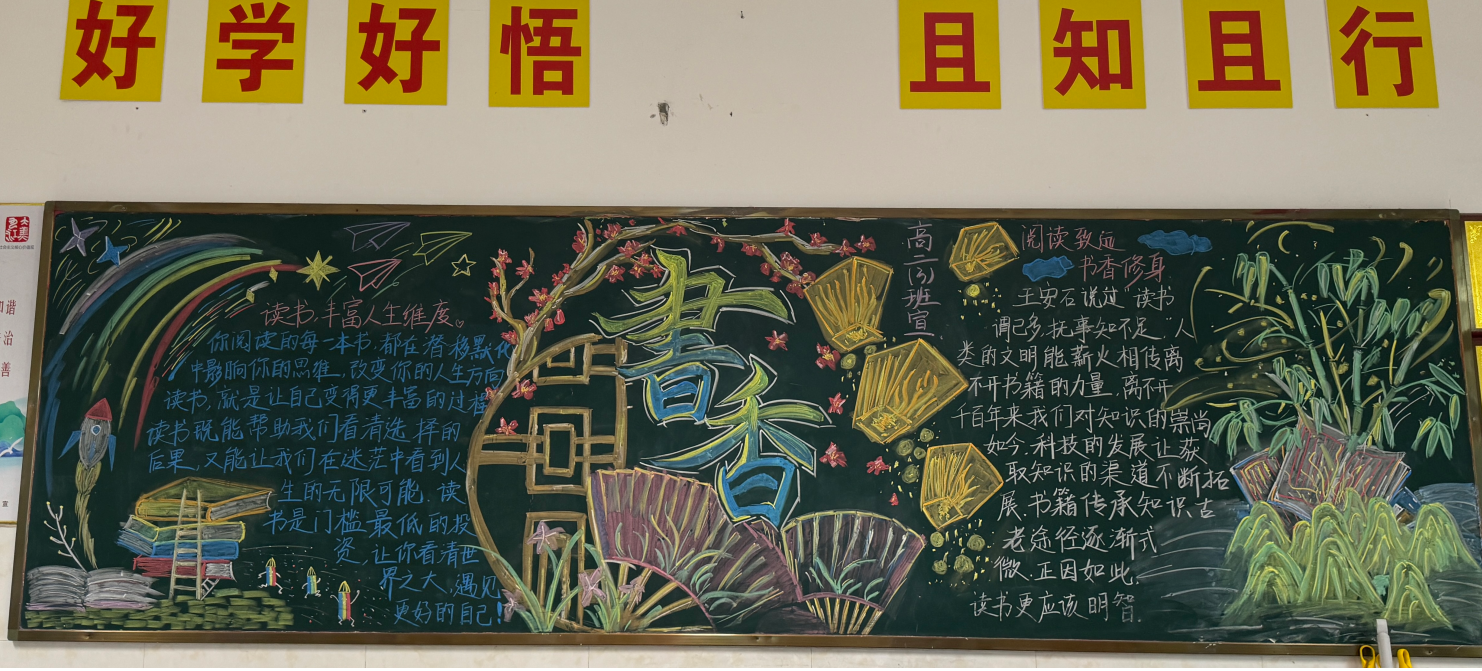 好学好悟
且知且行
和谐
治
善
宣
读书,丰富人生维度。
你阅读的每一本书,都在潜移默化
中影响你的思维,改变你的人生方向
读书,就是让自己变得更丰富的过程
读书既能帮助我们看清选择的
后果,又能让我们在迷茫中看到人
生的无限可能.读
书是门槛最低的投
资,让你看清世
界之大,遇见
更好的自己!
書香
高二(3)班宣
阅读致远
书香修身
王安石说过"读书
谓已多,抚事知不足"人
类的文明能薪火相传离
不开书籍的力量,离不开
千百年来我们对知识的崇尚
如今.科技的发展让获
取知识的渠道不断拓
展.书籍传承知识古
老途径逐渐式
微.正因如此.
读书更应该明智.